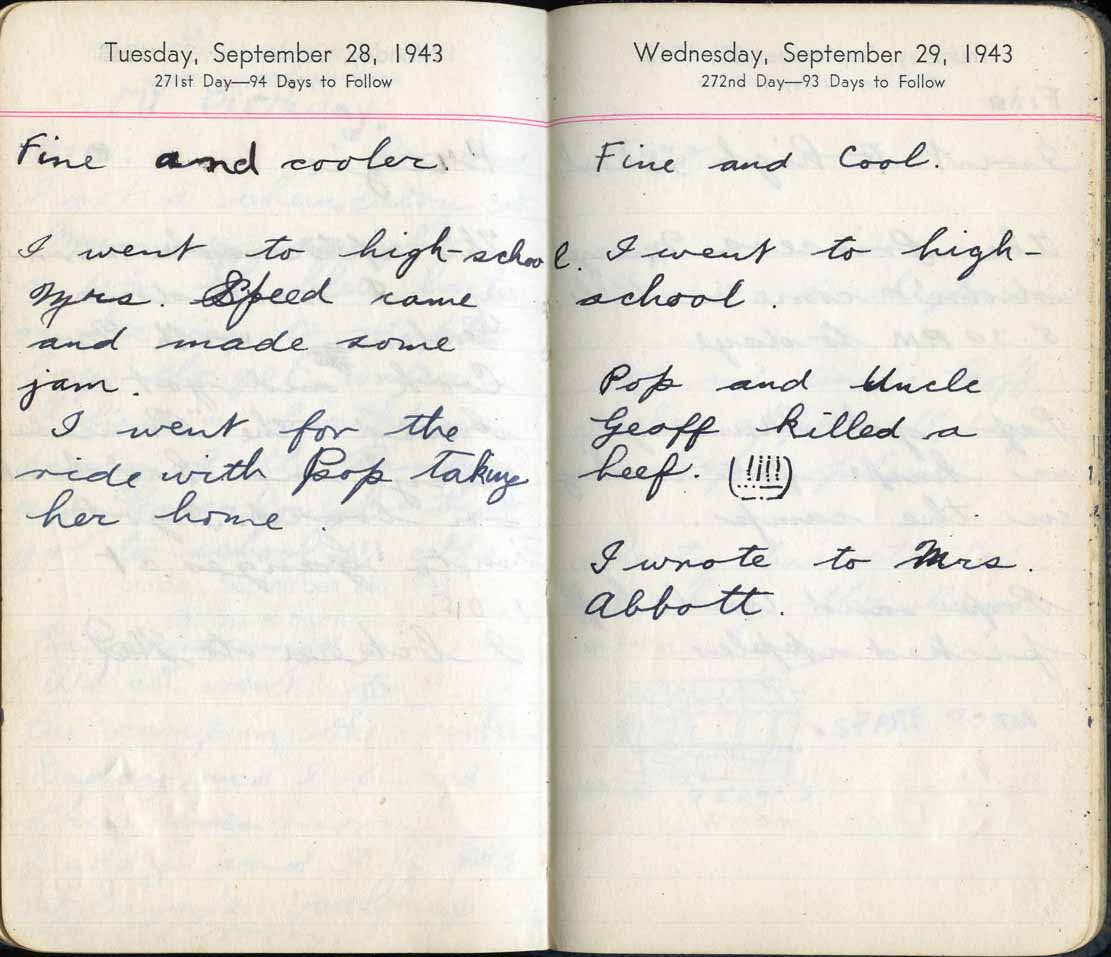 Tuesday, September 28, 1943
271st Day—94 Days to Follow
Fine and cooler.
I went to high-school.
Mrs. Speed came
and made some
jam.
I went for the
ride with Pop taking
her home.
Wednesday, September 29, 1943
272nd Day—93 Days to Follow
Fine and Cool.
I went to high-
school.
Pop and Uncle
Geoff killed a
beef. (!!!!!)
I wrote to Mrs.
Abbott.